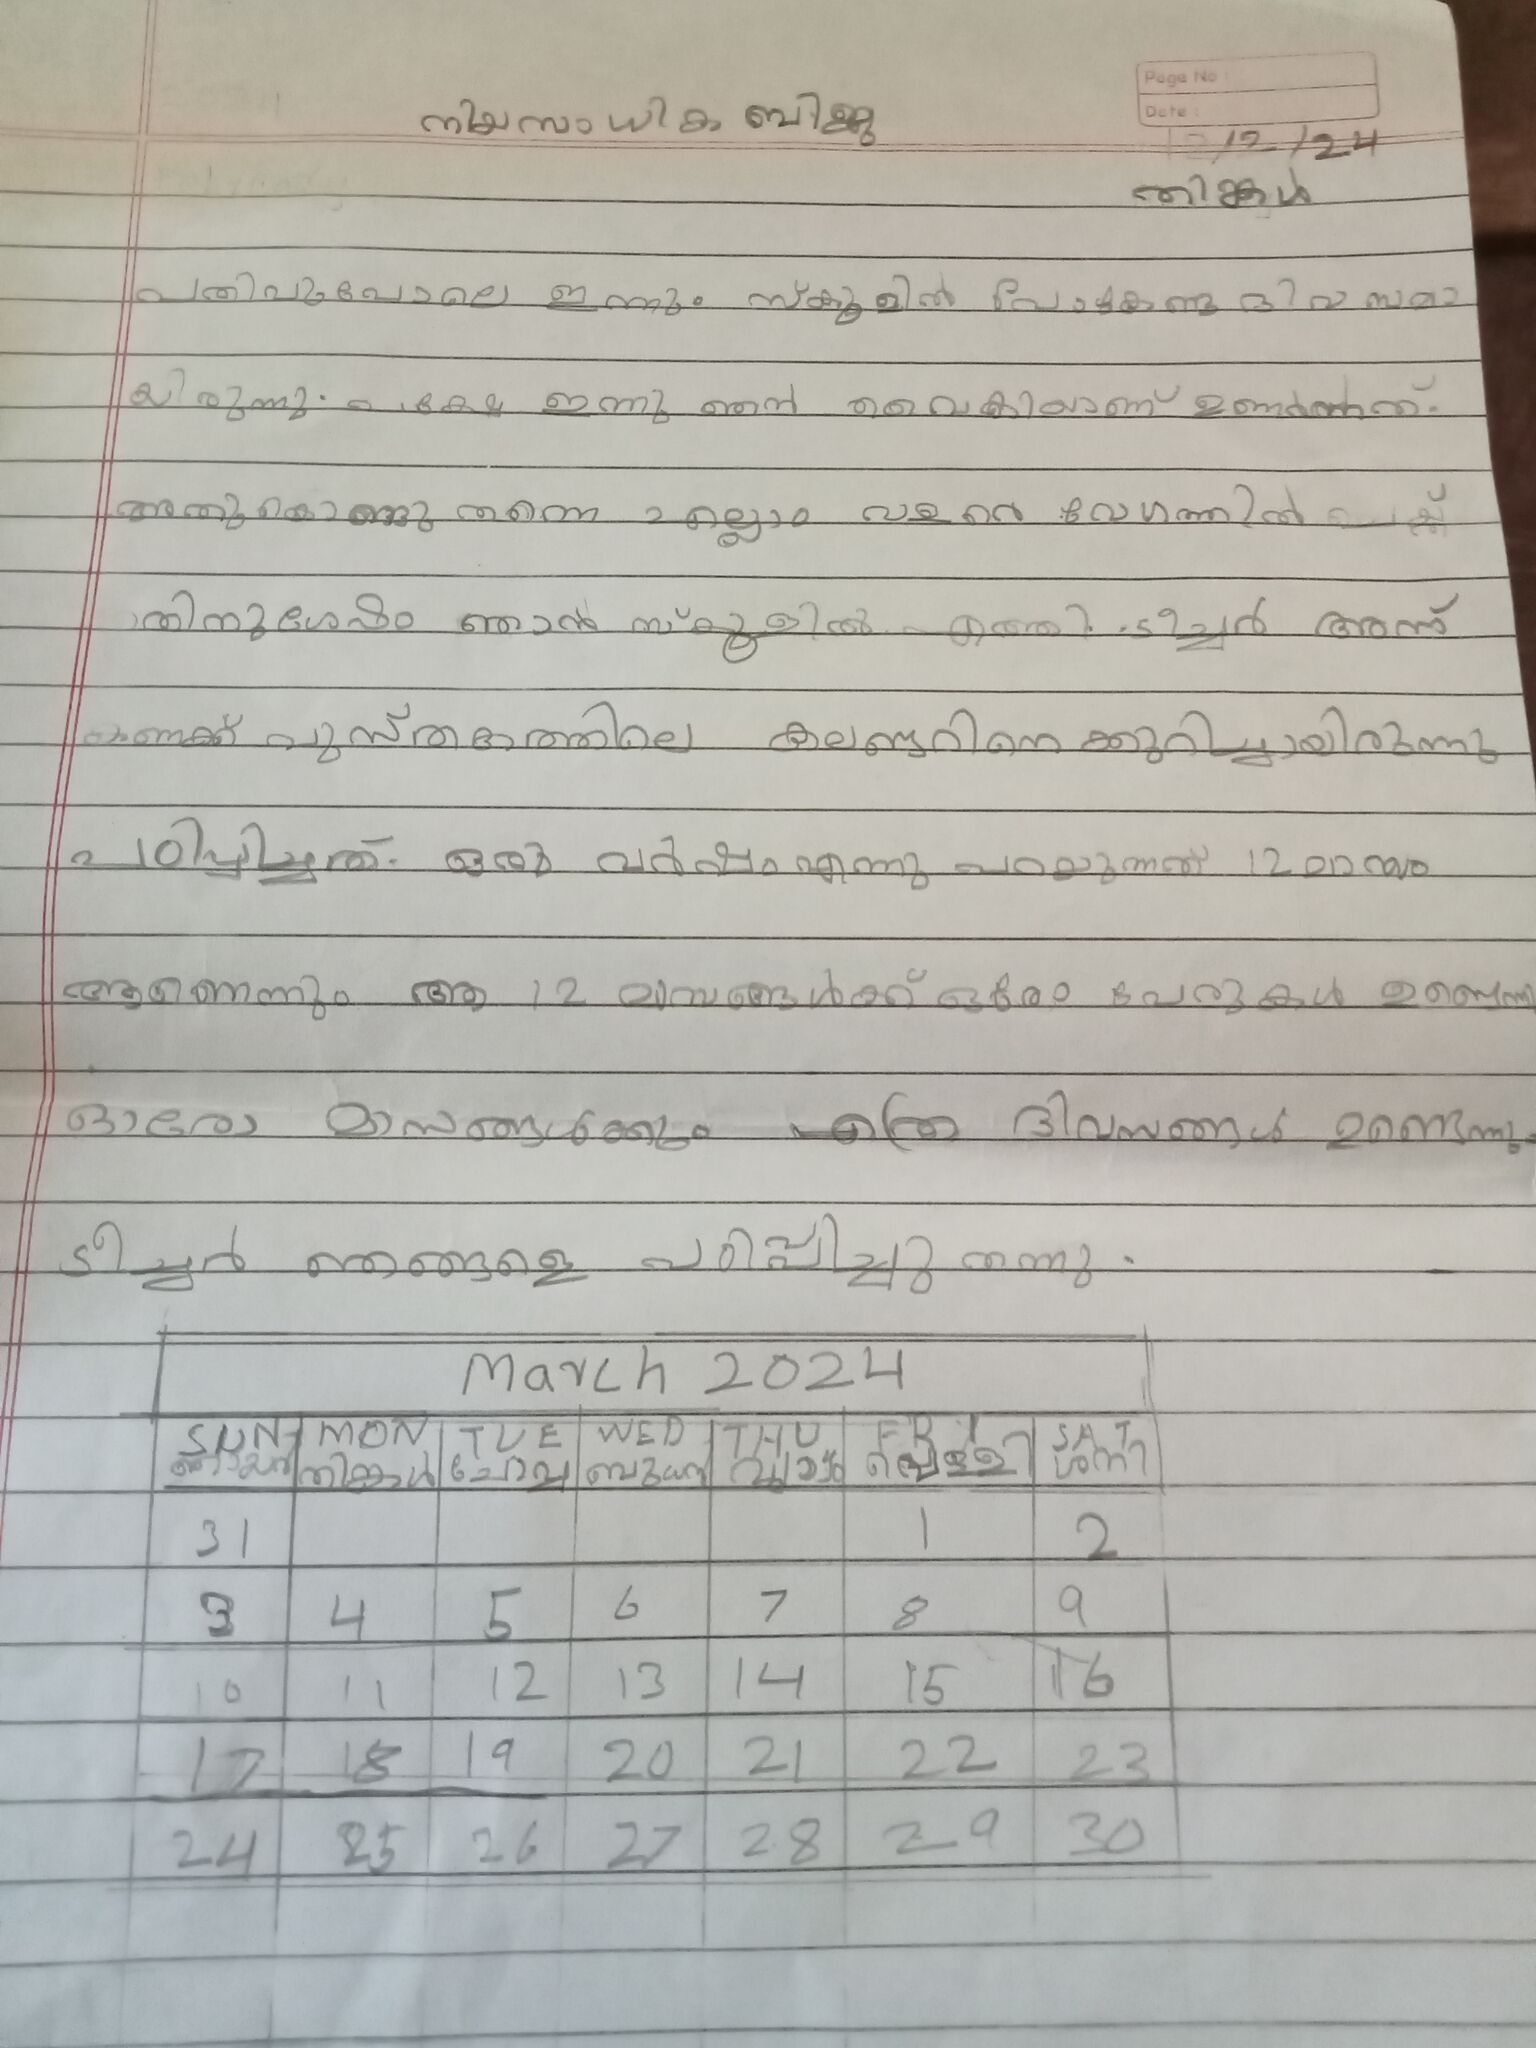 Page No :
Date :
/12/24
തിങ്കൾ
പതിവുപോലെ ഇന്നും സ്കൂളിൽ പോകേണ്ട ദിവസമാ
യിരുന്നു. പക്ഷേ ഇന്നു ഞൻ വൈകിയാണ് ഉണർന്നത്.
അതുകൊണ്ടു തന്നെ എല്ലാം വളരെ വേഗത്തിൽ
തിനുശേഷം ഞാൻ സ്കൂളിൽ എത്തി. ടീച്ചർ അന്ന്
ഗണക്ക് പുസ്തകത്തിലെ കലണ്ടറിനെക്കുറിച്ചായിരുന്നു
പഠിപ്പിച്ചത്. ഒരു വർഷം എന്നു പറയുന്നത് 12 മാസം
ആണെന്നും ആ 12 മാസങ്ങൾക്ക് ഒരോ പേരുകൾ ഉണ്ടെന്നു
ഓരോ മാസങ്ങൾക്കും എത്ര ദിവസങ്ങൾ ഉണ്ടെന്നും
ടീച്ചർ ഞങ്ങളെ പഠിപ്പിച്ചു തന്നു.
March 2024
SUN MON TUE WED THU FRI SAT
ഞായർ തിങ്കൾ ചൊവ്വ ബുധൻ വ്യാഴം വെള്ളി ശനി
31 1 2
3 4 5 6 7 8 9
10 11 12 13 14 15 16
17 18 19 20 21 22 23
24 25 26 27 28 29 30